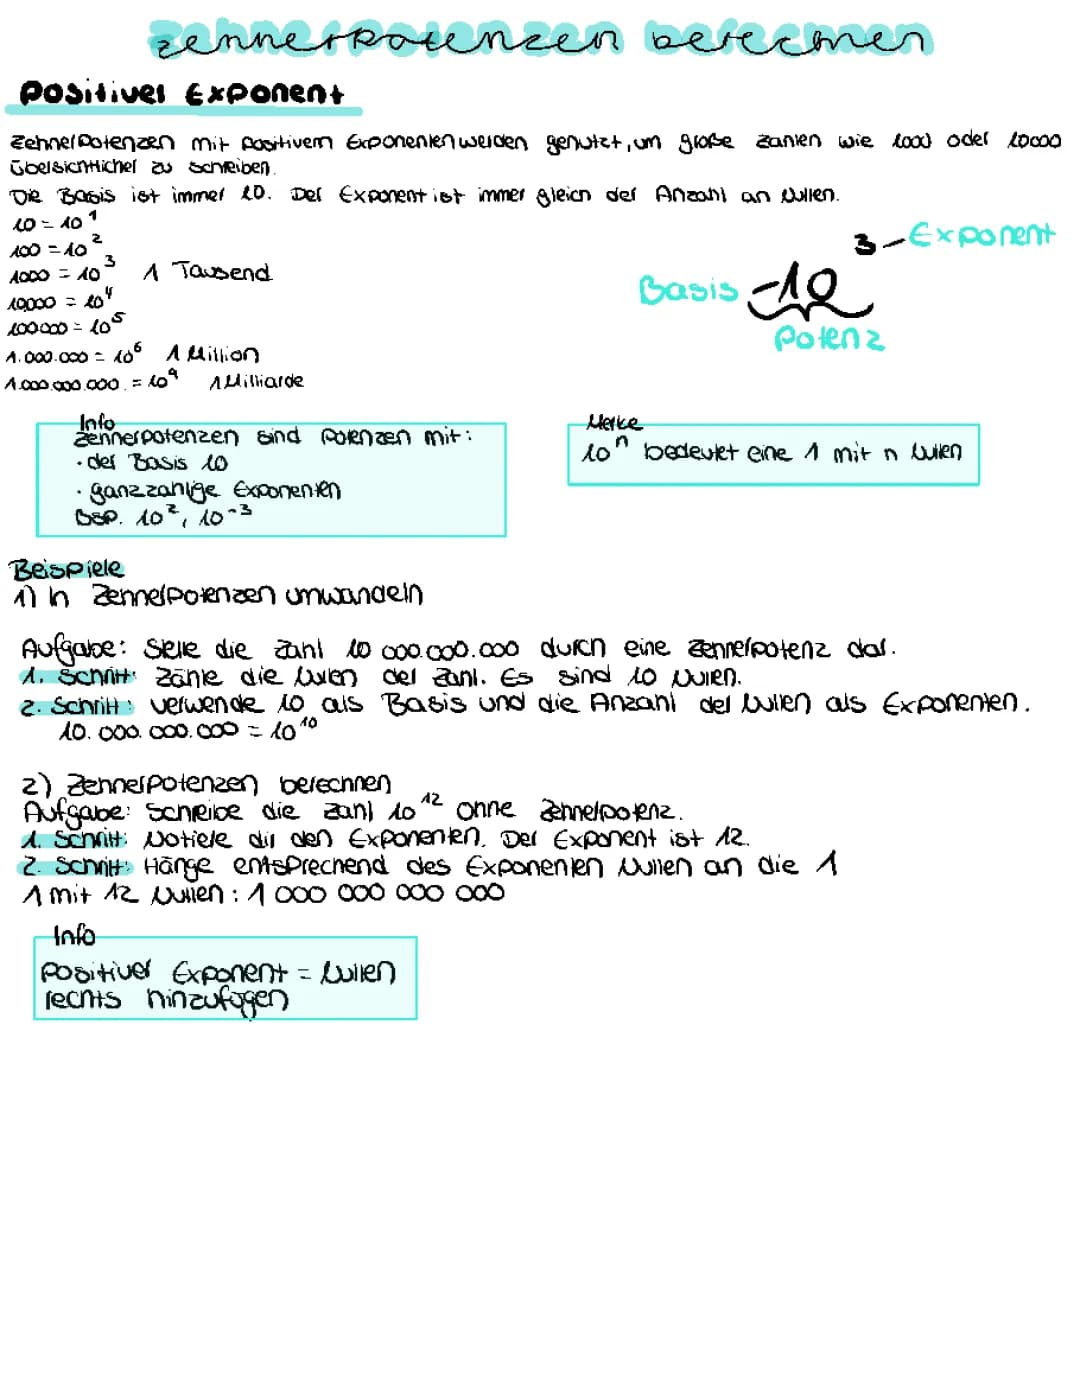 Zehnerpotenzen berechnen
Positiver Exponent
Zehnerpotenzen mit positivem Exponenten werden genutzt, um große Zahlen wie 1000 oder 10000
übersichtlicher zu schreiben.
Die Basis ist immer 10. Der Exponent ist immer gleich der Anzahl an Nullen.
10 = 10¹
100 = 10²
1000 = 10³ 1 Tausend
10.000 = 10⁴
100.000 = 10⁵
1.000.000 = 10⁶ 1 Million
1.000.000.000 = 10⁹ 1 Milliarde
3 - Exponent
Basis - 10
Potenz
Info
Zehnerpotenzen sind Potenzen mit:
· der Basis 10
· ganzzahlige Exponenten
Bsp. 10², 10⁻³
Merke
10ⁿ bedeutet eine 1 mit n Nullen
Beispiele
1) In Zehnerpotenzen umwandeln
Aufgabe: Stelle die Zahl 10 000.000.000 durch eine Zehnerpotenz dar.
1. Schritt: Zähle die Nullen der Zahl. Es sind 10 Nullen.
2. Schritt: Verwende 10 als Basis und die Anzahl der Nullen als Exponenten.
10.000.000.000 = 10¹⁰
2) Zehnerpotenzen berechnen
Aufgabe: Schreibe die Zahl 10¹² ohne Zehnerpotenz.
1. Schritt: Notiere dir den Exponenten. Der Exponent ist 12.
2. Schritt: Hänge entsprechend des Exponenten Nullen an die 1
1 mit 12 Nullen: 1 000 000 000 000
Info
Positiver Exponent = Nullen
rechts hinzufügen